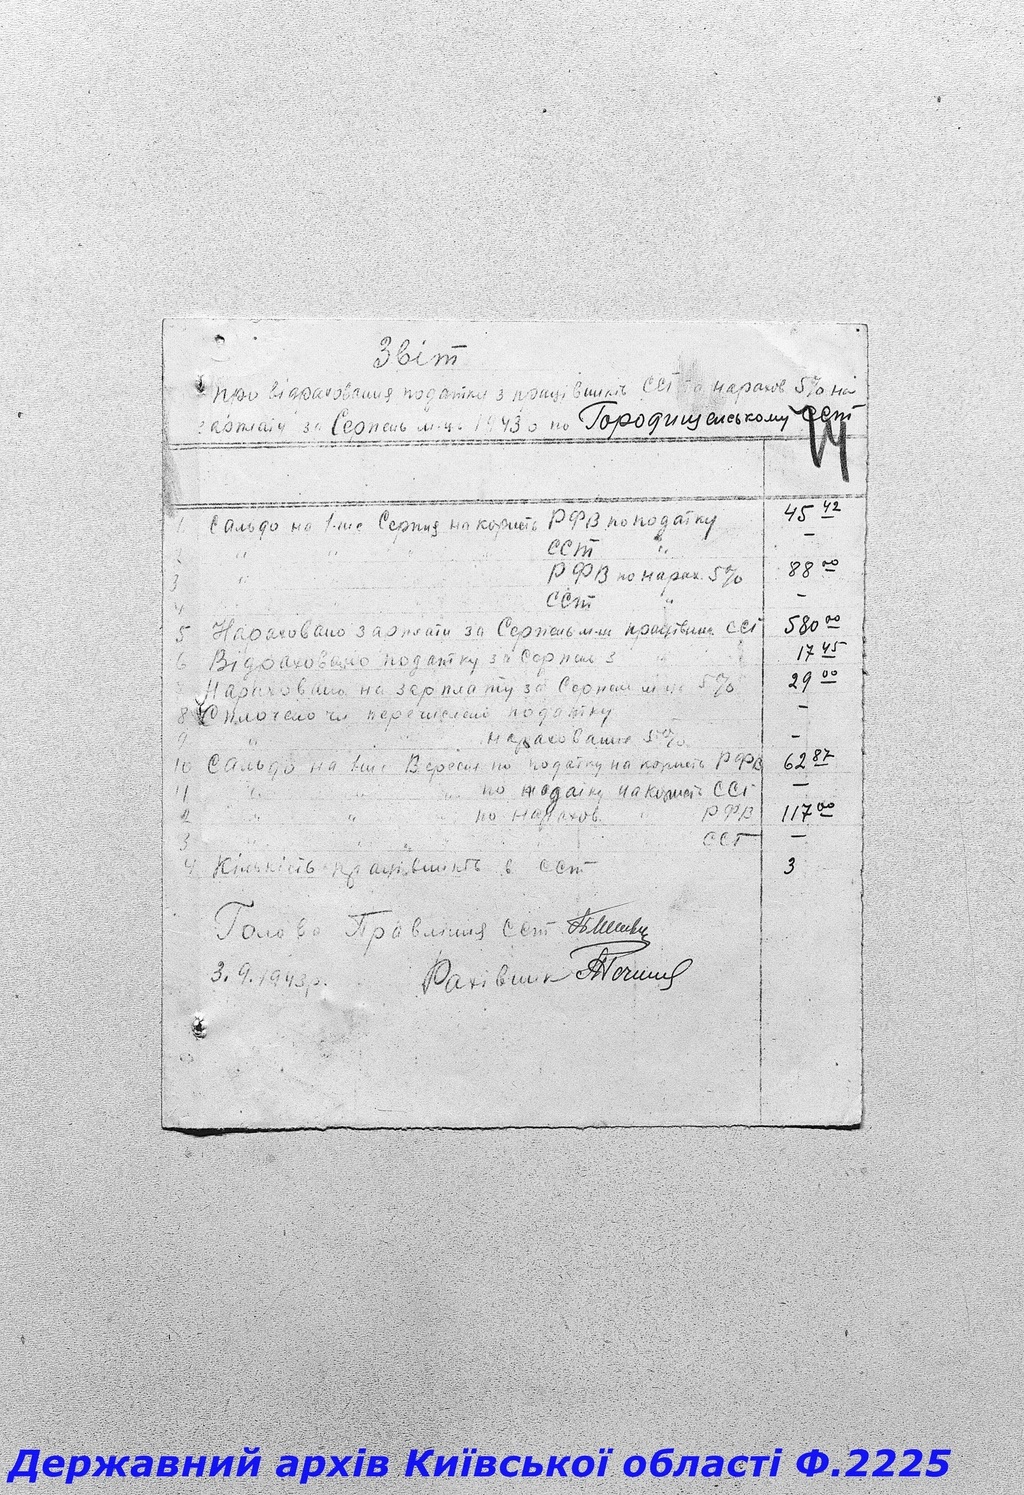 Звіт
про відраховання податку з працівників ССТ та нарахов 5% на
зарплату за Серпень м-ць 1943 р по Городищенському ССТ
74
1 Сальдо на 1-ше Серпня на користь РФВ по податку 45 42
2 " " ССТ " —
3 " РФВ по нарах. 5% 88 00
4 ССТ " —
5 Нараховано зарплати за Серпень м-ць працівник ССТ 580 00
6 Відраховано податку за Серпень з " " 17 45
7 Нараховано на зарплату за Серпень м-ць 5% 29 00
8 Сплочено чи перечислено податку —
9 " нараховання 5% —
10 Сальдо на 1-ше Вересня по податку на користь РФВ 62 87
11 " " " по податку на користь ССТ —
2 " " " по нарахов. " РФВ 117 00
3 " " ССТ —
4 Кількість працівників в ССТ 3
Голова Правління ССТ
3.9.1943р. Рахівник
Державний архів Київської області Ф.2225